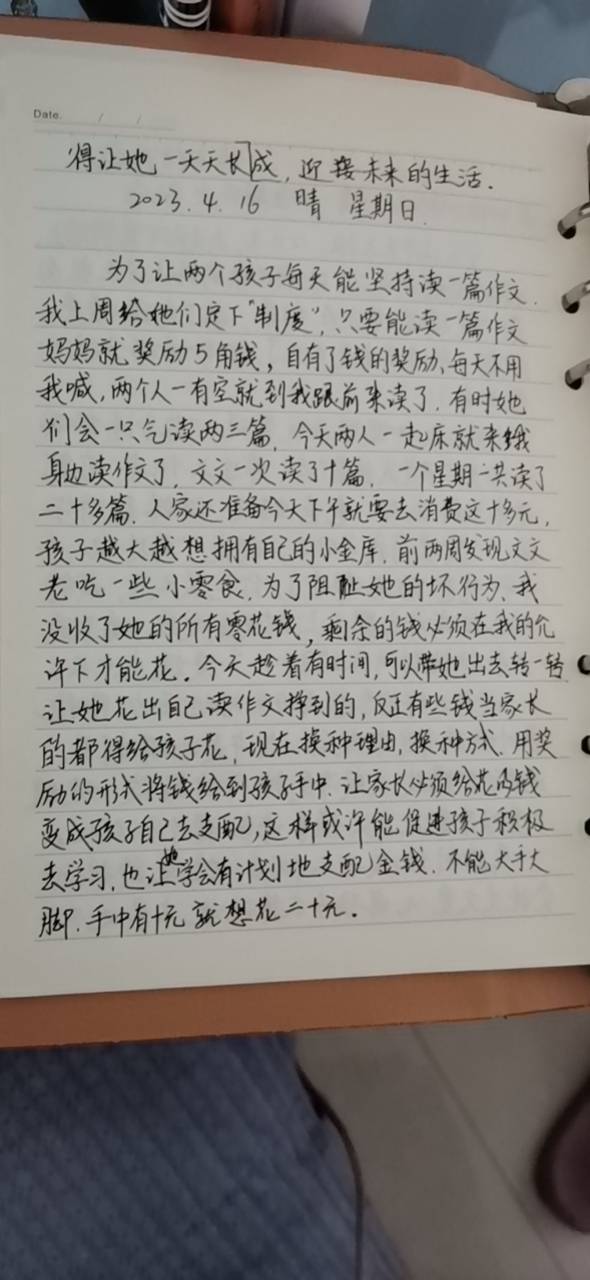 Date: / /
得让她一天天长成，迎接未来的生活.
2023.4.16 晴 星期日.
为了让两个孩子每天能坚持读一篇作文.
我上周给她们定下"制度"，只要能读一篇作文
妈妈就奖励5角钱，自有了钱的奖励，每天不用
我喊，两个人一有空就到我跟前来读了.有时她
们会一口气读两三篇.今天两人一起床就来我
身边读作文了，文文一次读了十篇.一个星期一共读了
二十多篇.人家还准备今天下午就要去消费这十多元，
孩子越大越想拥有自己的小金库.前两周发现文文
老吃一些小零食.为了阻止她的坏行为.我
没收了她的所有零花钱，剩余的钱必须在我的允
许下才能花.今天趁着有时间，可以带她出去转一转
让她花出自己读作文挣到的，反正有些钱当家长
的都得给孩子花，现在换种理由，换种方式.用奖
励的形式将钱给到孩子手中.让家长必须给花的钱
变成孩子自己去支配，这样或许能促进孩子积极
去学习.也让她学会有计划地支配金钱.不能大手大
脚.手中有十元就想花二十元.